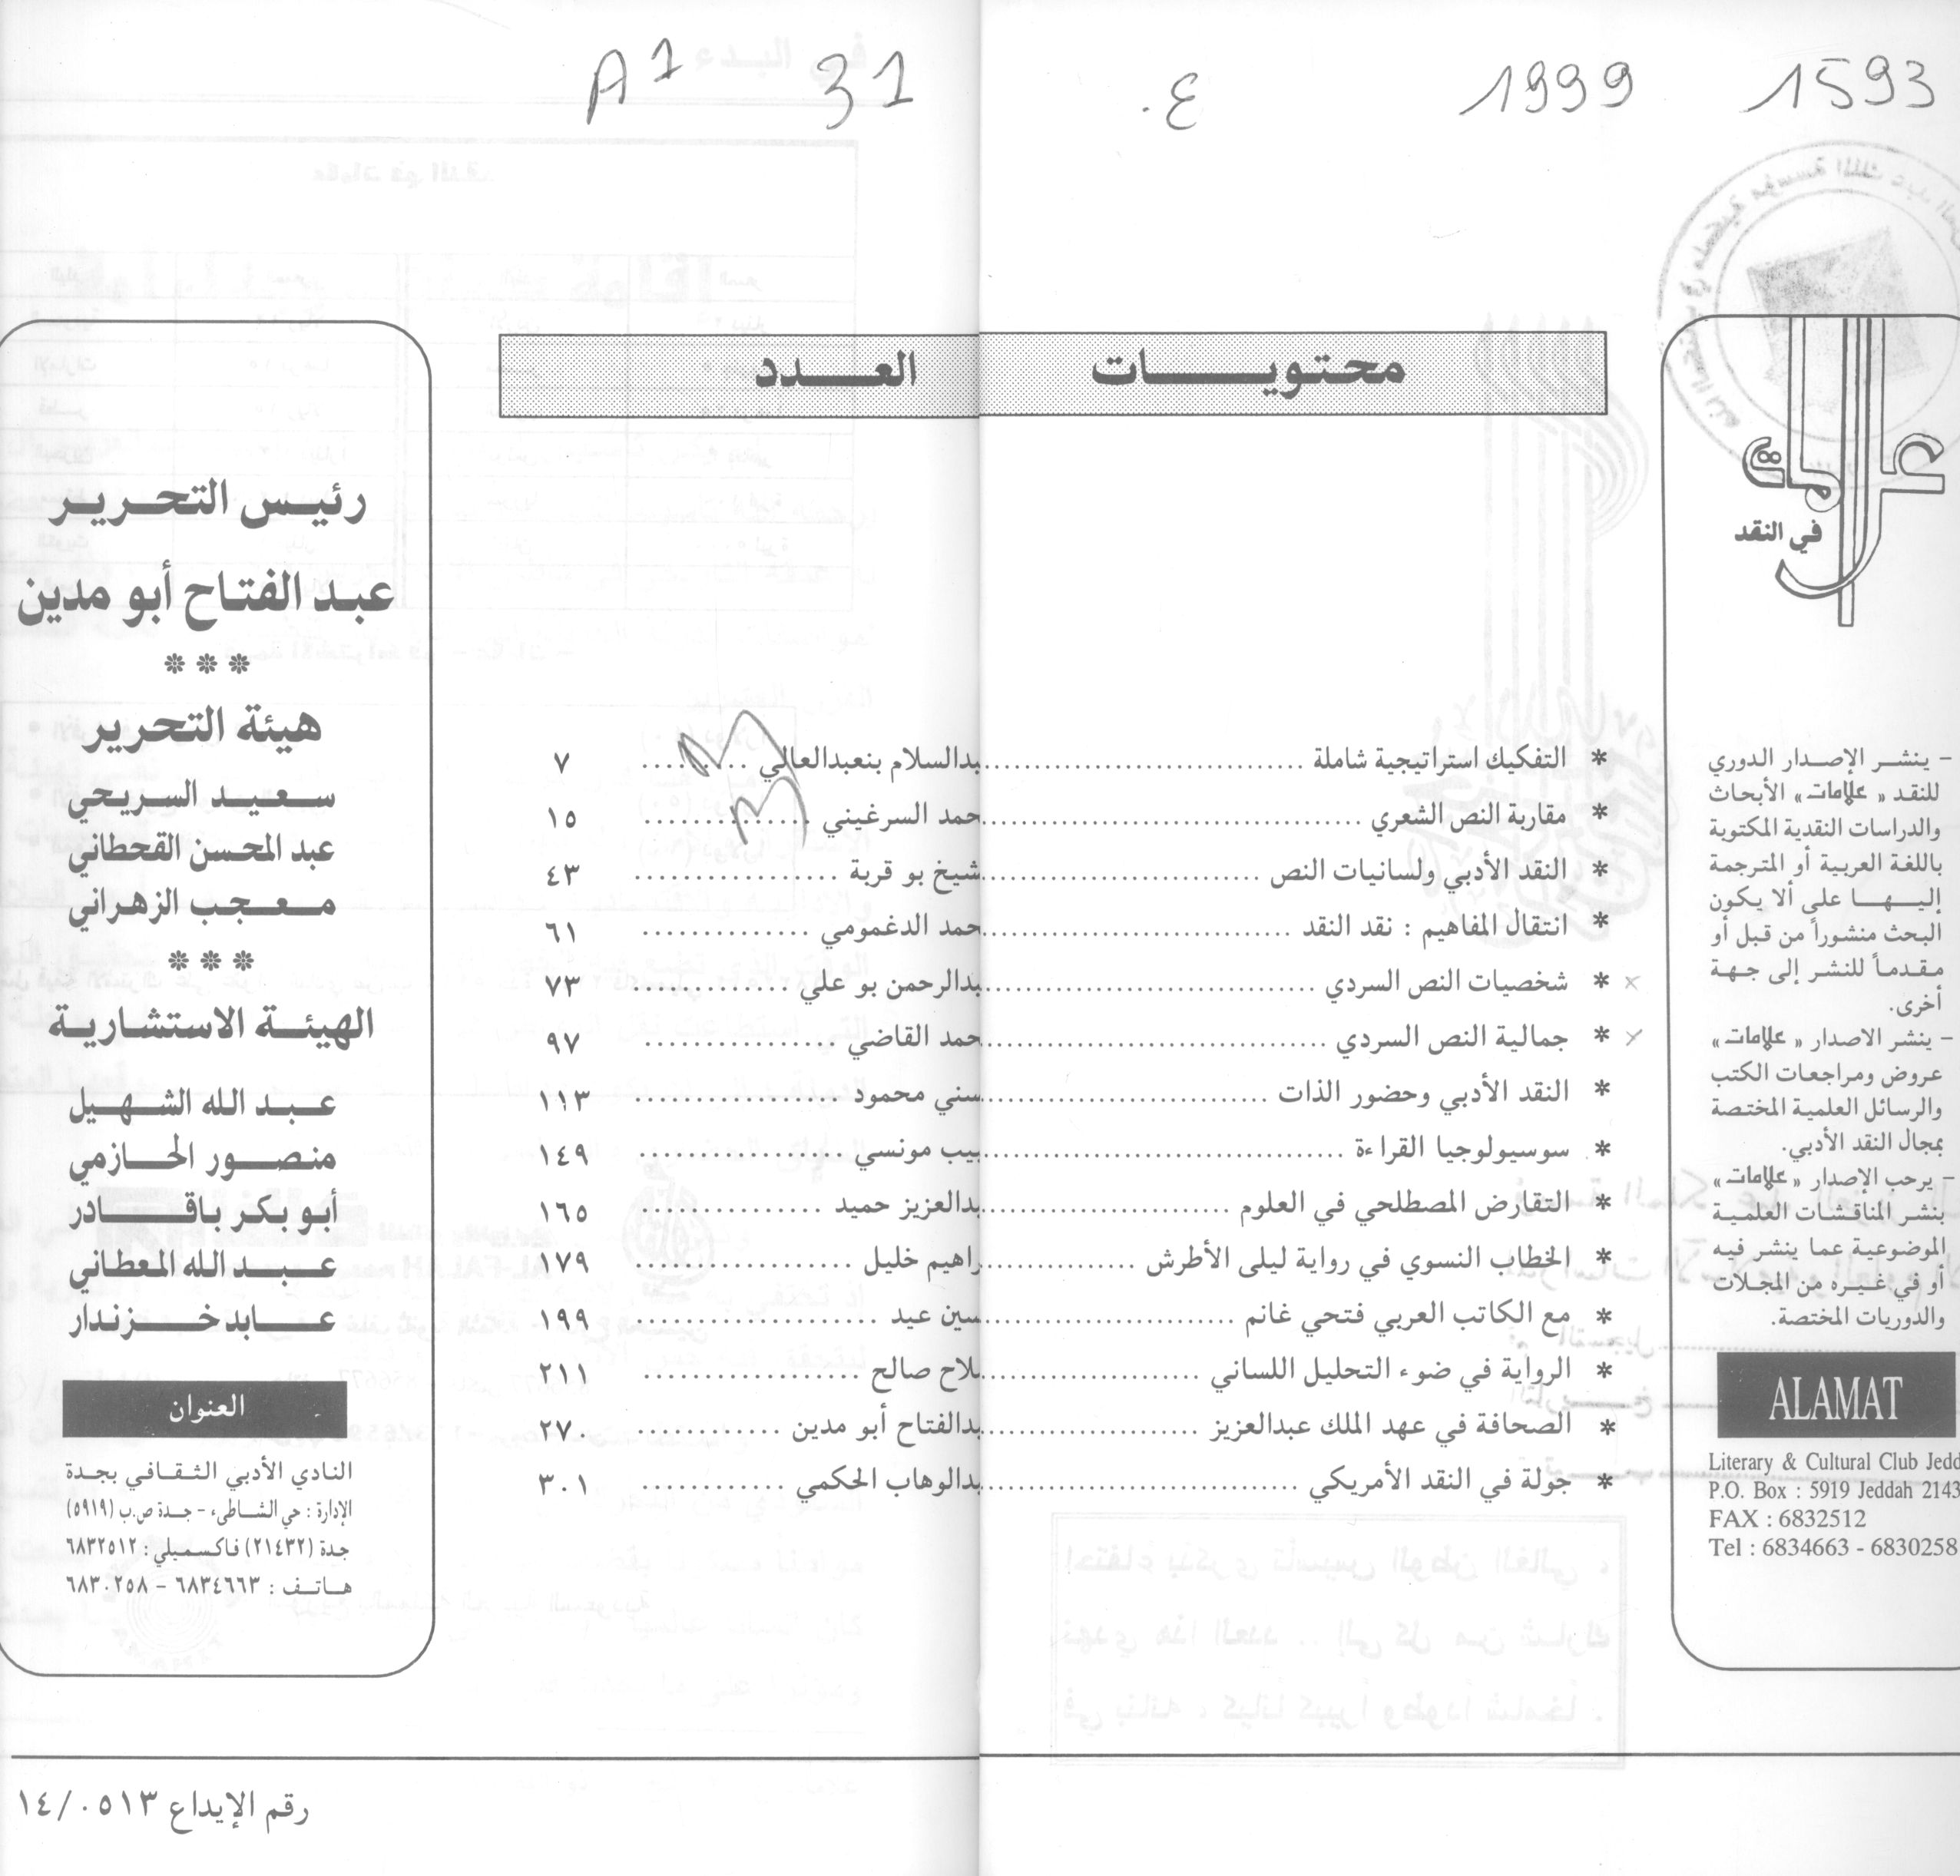 1593 1999 ع. 31 A1
علامات
في النقد
- ينشر الإصدار الدوري
للنقد « علامات » الأبحاث
والدراسات النقدية المكتوبة
باللغة العربية أو المترجمة
إليها على ألا يكون
البحث منشوراً من قبل أو
مقدماً للنشر إلى جهة
أخرى.
- ينشر الاصدار « علامات »
عروض ومراجعات الكتب
والرسائل العلمية المختصة
بمجال النقد الأدبي.
- يرحب الإصدار « علامات »
بنشر المناقشات العلمية
الموضوعية عما ينشر فيه
أو في غيره من المجلات
والدوريات المختصة.
ALAMAT
Literary & Cultural Club Jedd
P.O. Box : 5919 Jeddah 2143
FAX : 6832512
Tel : 6834663 - 6830258
محتويات العدد
* التفكيك استراتيجية شاملة ............ بدالسلام بنعبدالعالي ........ ٧
* مقاربة النص الشعري ............ حمد السرغيني ............ ١٥
* النقد الأدبي ولسانيات النص ............ شيخ بو قربة ............ ٤٣
* انتقال المفاهيم : نقد النقد ............ حمد الدغمومي ............ ٦١
* شخصيات النص السردي ............ بدالرحمن بو علي ............ ٧٣
* جمالية النص السردي ............ حمد القاضي ............ ٩٧
* النقد الأدبي وحضور الذات ............ سني محمود ............ ١١٣
* سوسيولوجيا القراءة ............ بيب مونسي ............ ١٤٩
* التقارض المصطلحي في العلوم ............ بدالعزيز حميد ............ ١٦٥
* الخطاب النسوي في رواية ليلى الأطرش ............ راهيم خليل ............ ١٧٩
* مع الكاتب العربي فتحي غانم ............ سين عيد ............ ١٩٩
* الرواية في ضوء التحليل اللساني ............ للاح صالح ............ ٢١١
* الصحافة في عهد الملك عبدالعزيز ............ بدالفتاح أبو مدين ............ ٢٧٠
* جولة في النقد الأمريكي ............ بدالوهاب الحكمي ............ ٣٠١
رئيس التحرير
عبد الفتاح أبو مدين
***
هيئة التحرير
سعيد السريحي
عبد المحسن القحطاني
معجب الزهراني
***
الهيئة الاستشارية
عبد الله الشهيل
منصور الحازمي
أبو بكر باقادر
عبد الله المعطاني
عابد خزندار
العنوان
النادي الأدبي الثقافي بجدة
الإدارة : حي الشاطىء - جدة ص.ب (٥٩١٩)
جدة (٢١٤٣٢) فاكسميلي : ٦٨٣٢٥١٢
هاتف : ٦٨٣٤٦٦٣ - ٦٨٣٠٢٥٨
رقم الإيداع ١٤/٠٥١٣